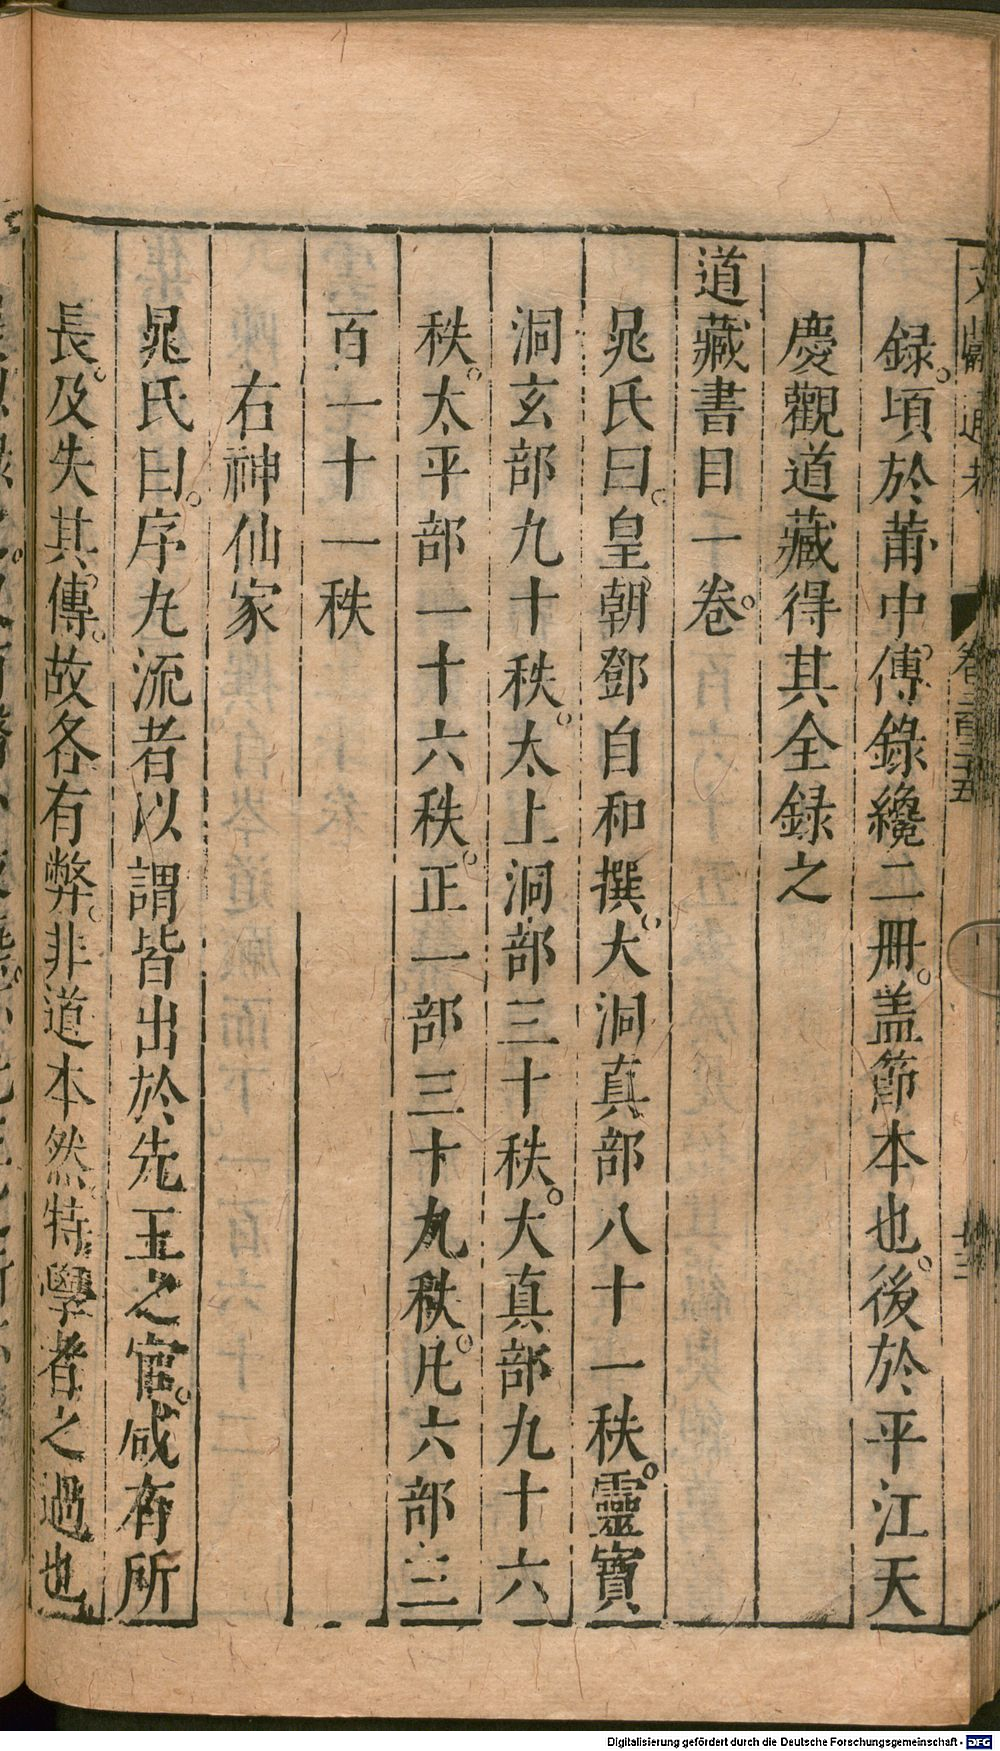 文獻通考 卷二百二十五 十三
録。頃於莆中。傳錄纔二冊。盖節本也。後於平江天
慶觀道藏得其全録之
道藏書目一卷。
晁氏曰。皇朝鄧自和撰。大洞真部八十一秩。靈寶
洞玄部九十秩。太上洞部三十秩。大真部九十六
秩。太平部一十六秩。正一部三十九秩。凡六部三
百一十一秩
右神仙家
晁氏曰。序九流者以謂皆出於先王之官。咸有所
長。及失其傳。故各有弊。非道本然。特學者之過也。
Digitalisierung gefördert durch die Deutsche Forschungsgemeinschaft - DFG